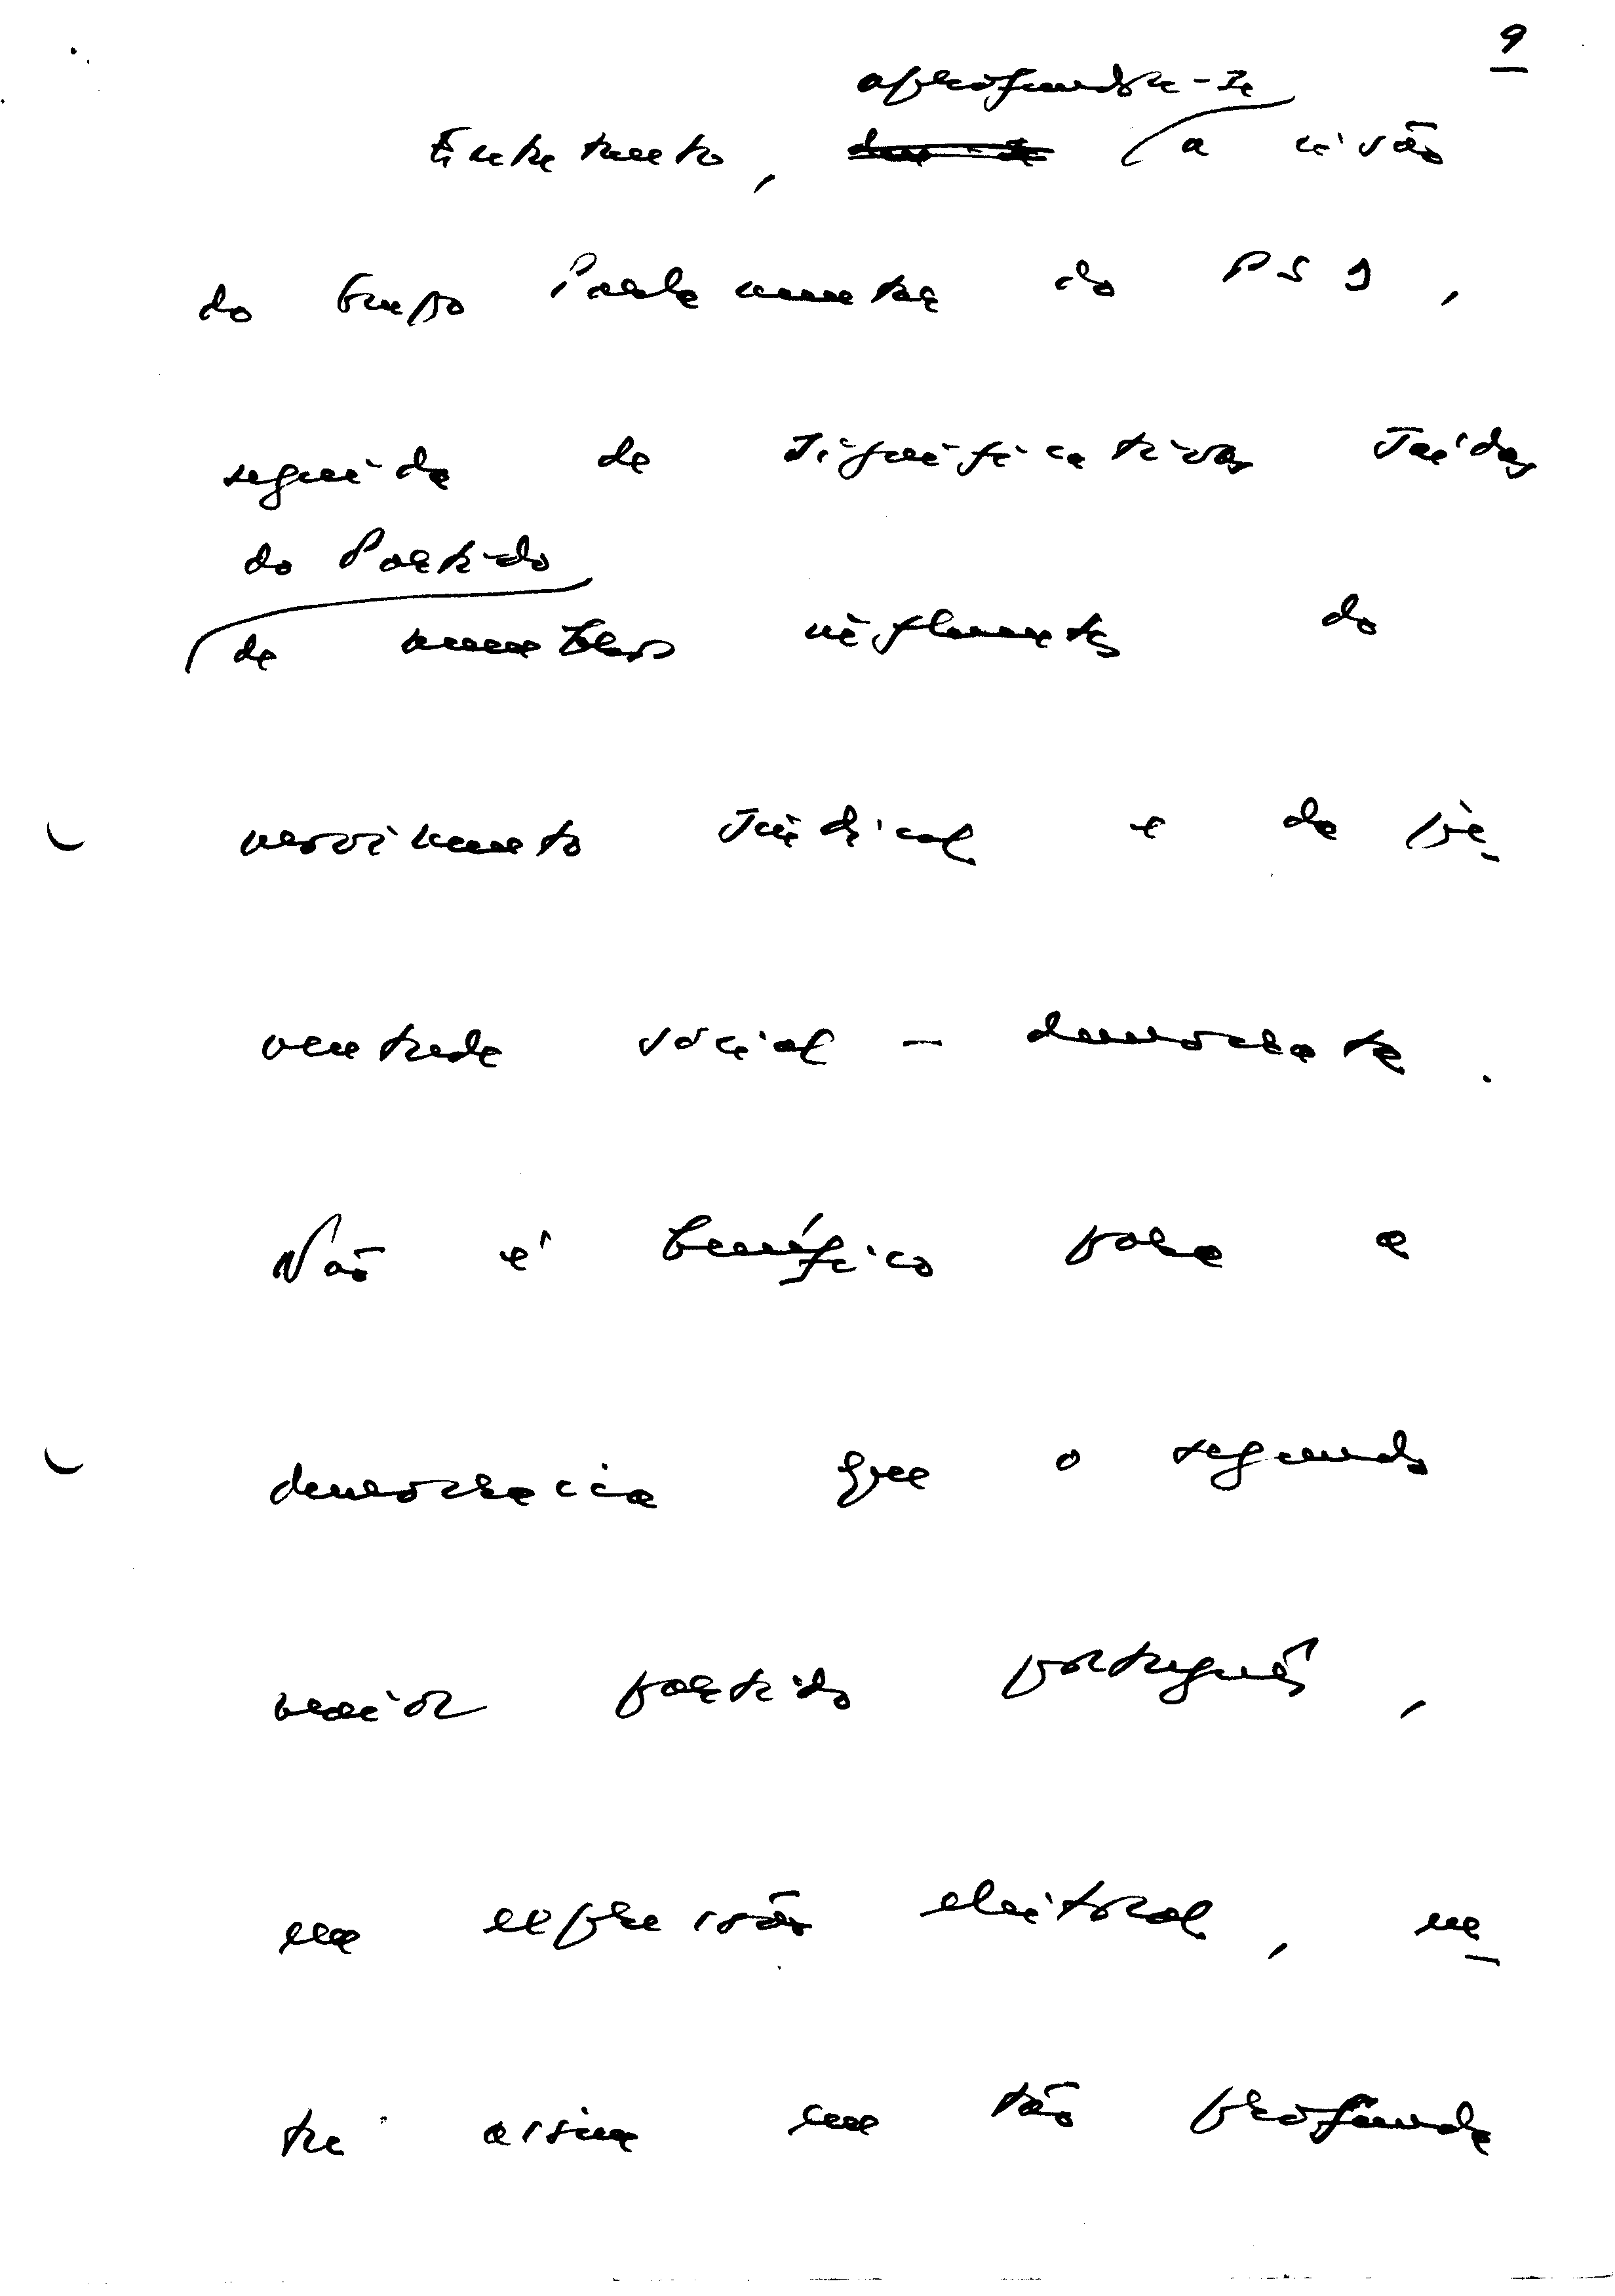 9
aprofunda-se
Entretanto, a cisão
do Grupo Parlamentar do PSD,
seguida de significativas saídas
do Partido
de membros influentes do
movimento sindical e da ju-
ventude social-democrata.
Não é benéfico para a
democracia que o segundo
maior partido português,
em expressão eleitoral, en-
tre assim em tão profunda